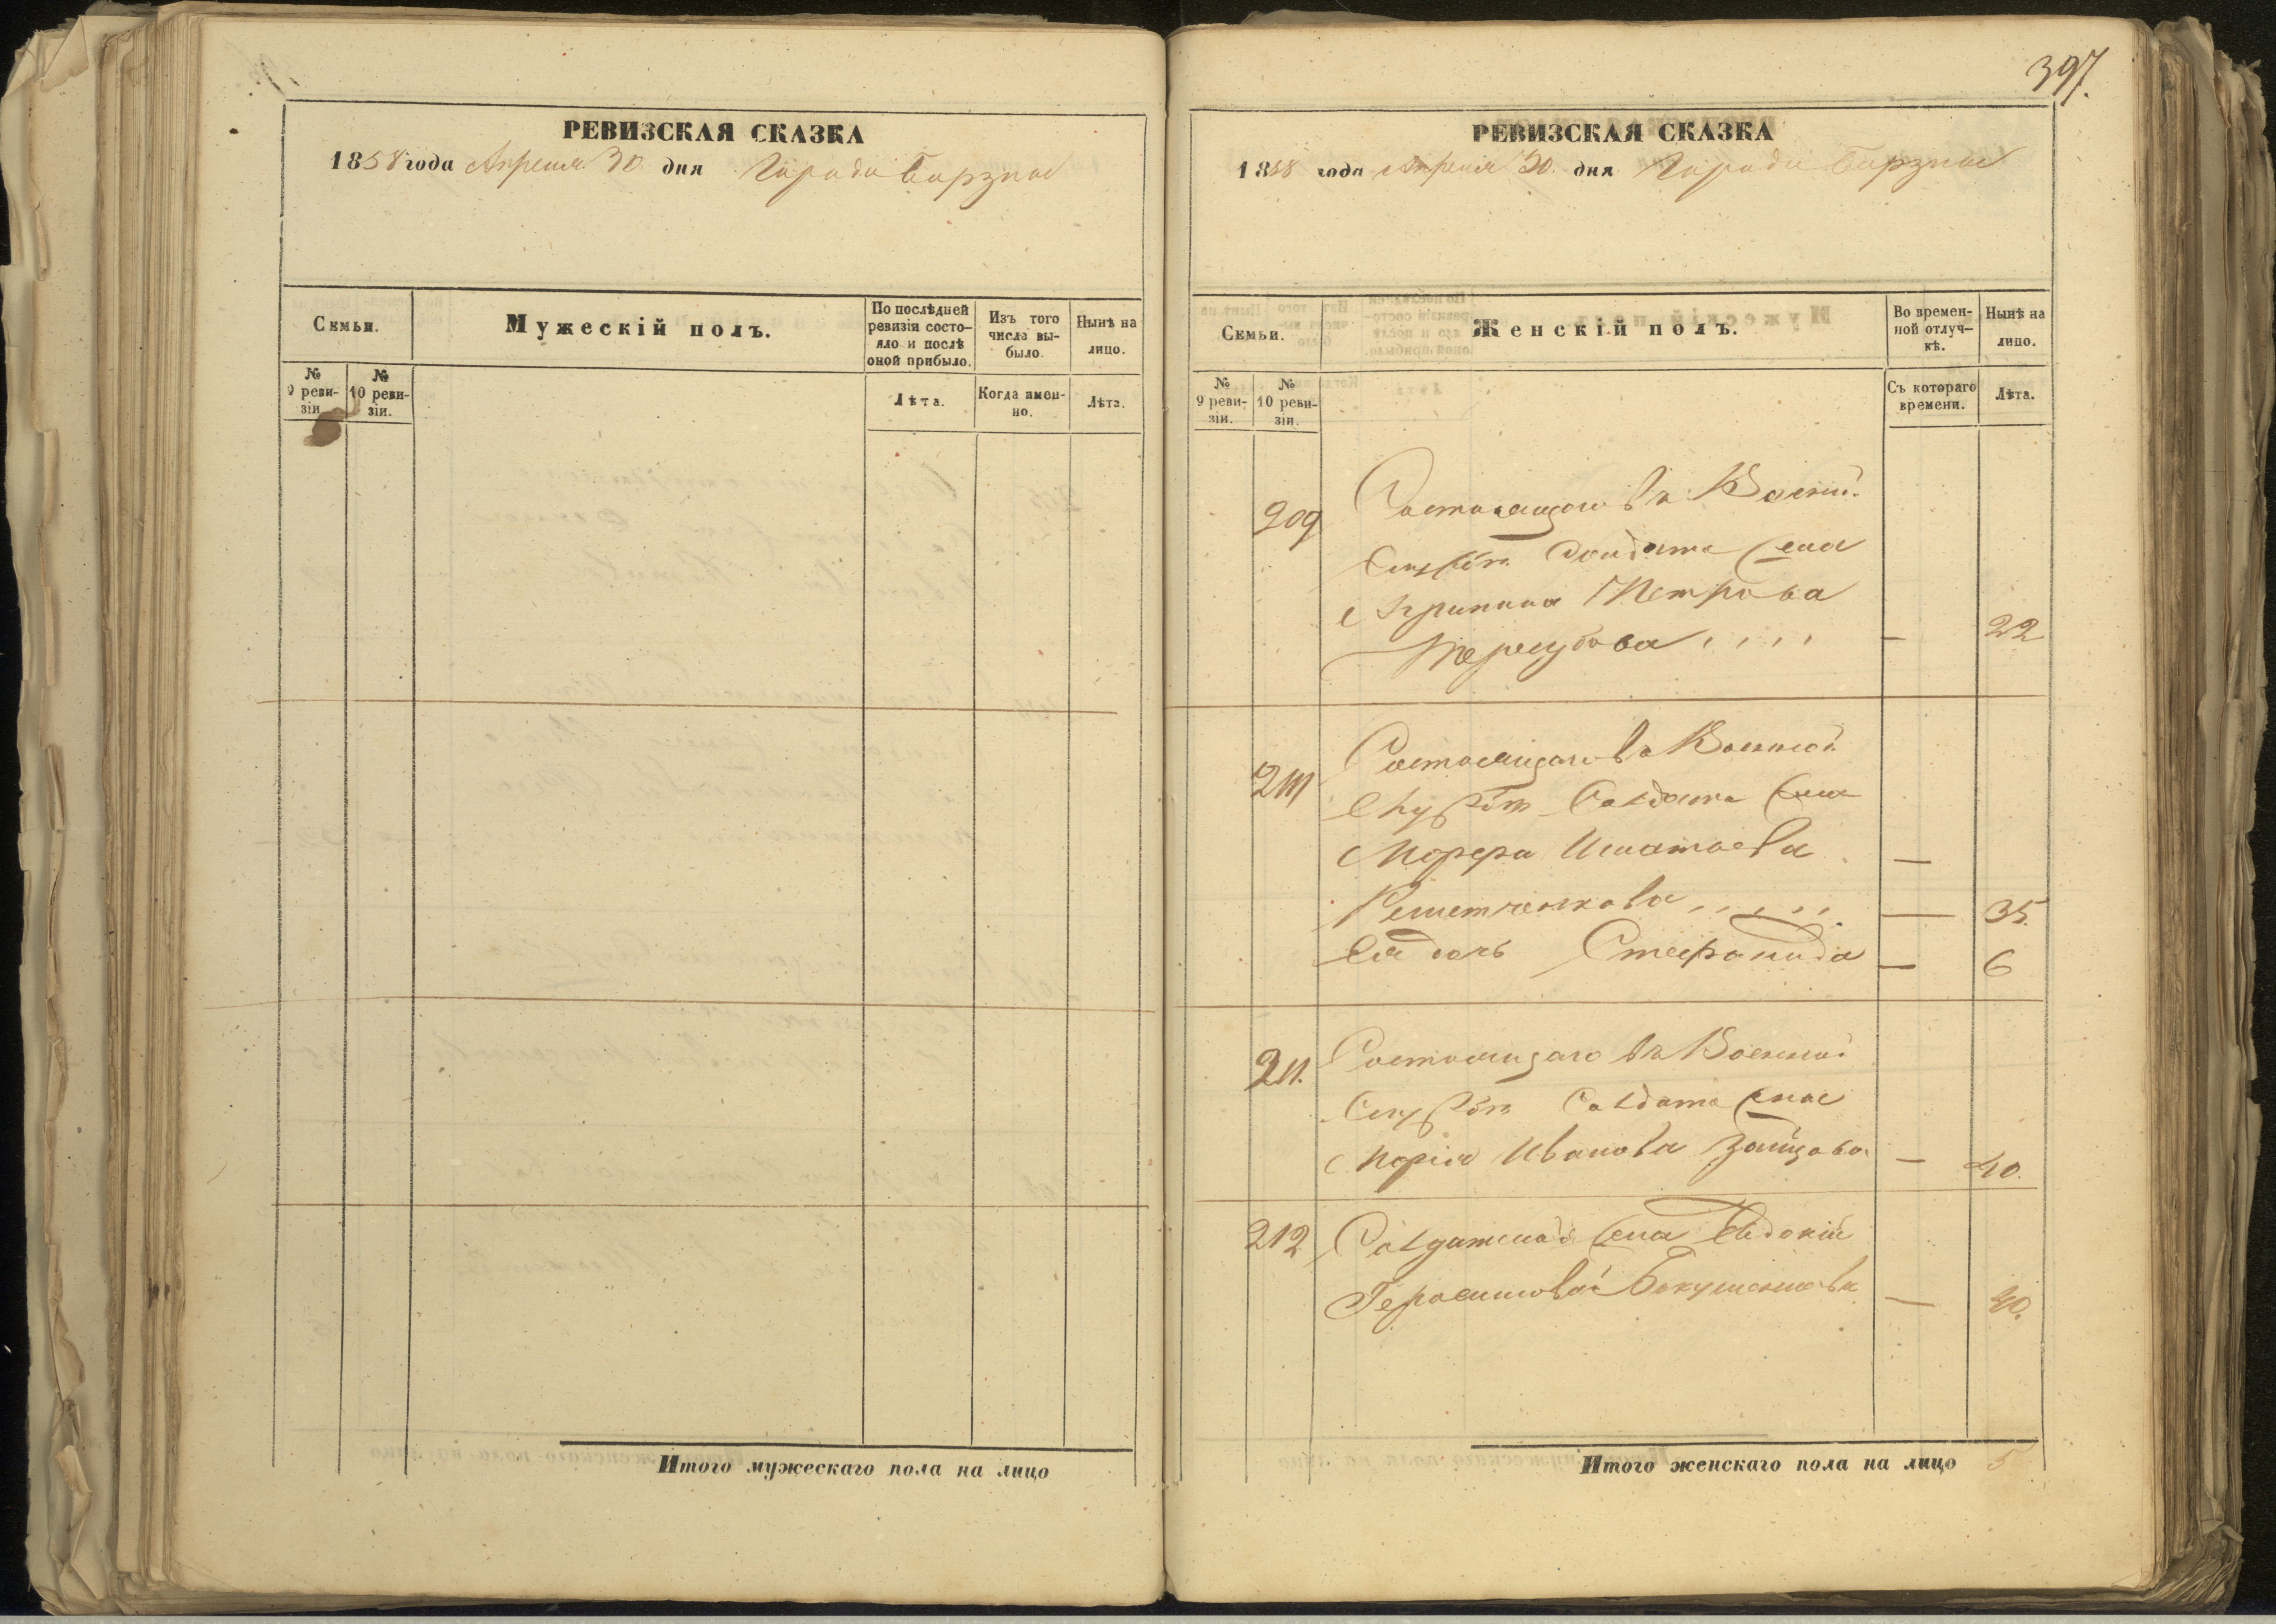 РЕВИЗСКАЯ СКАЗКА
1858 года Апреля 30 дня Города Борзны
Семьи.
Мужескій полъ.
По послѣдней ревизіи состо-
яло и послѣ
оной прибыло.
Изъ того
числа вы-
было.
Нынѣ на
лицо.
№
9 реви-
зіи.
№
10 реви-
зіи.
Лѣта.
Когда имен-
но.
Лѣта.
Итого мужескаго пола на лицо
397.
РЕВИЗСКАЯ СКАЗКА
1858 года Апреля 30 дня Города Борзны
Семьи.
Женскій полъ.
Во времен-
ной отлуч-
кѣ.
Нынѣ на
лицо.
№
9 реви-
зіи.
№
10 реви-
зіи.
Съ котораго
времени.
Лѣта.
209 Состоящаго въ Военной
Службѣ Солдата жена
Агрипина Петрова
— 22
210 Состоящаго въ Военной
Службѣ Солдата жена
Игнатьева —
Решетченкова — 35.
Ея дочь Стефанида — 6
211. Состоящаго въ Военной
Службѣ Солдата жена
Марія Иванова Зайцова — 40.
212 Солдатской жена Евдокіи
Герасимовой — 40.
Итого женскаго пола на лицо 5